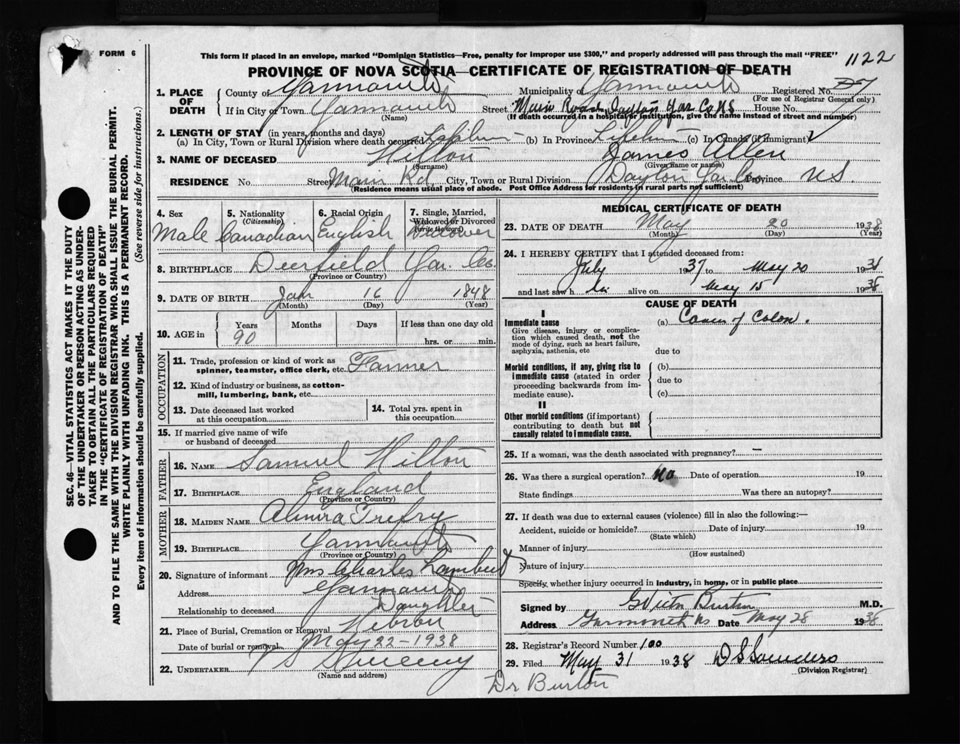 FORM 6
This form if placed in an envelope, marked "Dominion Statistics—Free, penalty for improper use $300," and properly addressed will pass through the mail "FREE"
1122
PROVINCE OF NOVA SCOTIA—CERTIFICATE OF REGISTRATION OF DEATH
1. PLACE OF DEATH
County of Yarmouth Municipality of Yarmouth Registered No.
(For use of Registrar General only)
If in City or Town Yarmouth Street Main Road Dayton Yar Co NS House No.
(Name) (If death occurred in a hospital or institution, give the name instead of street and number)
2. LENGTH OF STAY (in years, months and days)
(a) In City, Town or Rural Division where death occurred Lifetime (b) In Province Lifetime (c) In Canada (if immigrant)
3. NAME OF DECEASED Hilton James Allen
(Surname) (Given name or names)
RESIDENCE No. Street Main Rd City, Town or Rural Division Dayton Yar Co Province NS.
(Residence means usual place of abode. Post Office Address for residents in rural parts not sufficient)
4. Sex Male
5. Nationality (Citizenship) Canadian
6. Racial Origin English
7. Single, Married, Widowed or Divorced (write the word) Widower
8. BIRTHPLACE Deerfield Yar. Co.
(Province or Country)
9. DATE OF BIRTH Jan 16 1848
(Month) (Day) (Year)
10. AGE in Years 90 Months Days If less than one day old
hrs. or min.
OCCUPATION
11. Trade, profession or kind of work as spinner, teamster, office clerk, etc. Farmer
12. Kind of industry or business, as cotton-mill, lumbering, bank, etc.
13. Date deceased last worked at this occupation
14. Total yrs. spent in this occupation
15. If married give name of wife or husband of deceased
FATHER
16. NAME Samuel Hilton
17. BIRTHPLACE England
(Province or Country)
MOTHER
18. MAIDEN NAME Almira Trefry
19. BIRTHPLACE Yarmouth
(Province or Country)
20. Signature of informant Mrs Charles Lambert
Address Yarmouth
Relationship to deceased Daughter
21. Place of Burial, Cremation or Removal Hebron
Date of burial or removal May 22-1938
22. UNDERTAKER V S Sweeny
(Name and address)
MEDICAL CERTIFICATE OF DEATH
23. DATE OF DEATH May 20 1938
(Month) (Day) (Year)
24. I HEREBY CERTIFY that I attended deceased from:
July 1937 to May 20 1938
and last saw h im alive on May 15 1938
CAUSE OF DEATH
I
Immediate cause (a) Cancer of Colon.
Give disease, injury or complication which caused death, not the mode of dying, such as heart failure, asphyxia, asthenia, etc
due to
Morbid conditions, if any, giving rise to immediate cause (stated in order proceeding backwards from immediate cause).
(b)
due to
(c)
II
Other morbid conditions (if important) contributing to death but not causally related to immediate cause.
25. If a woman, was the death associated with pregnancy? —
26. Was there a surgical operation? No Date of operation 19
State findings Was there an autopsy?
27. If death was due to external causes (violence) fill in also the following:—
Accident, suicide or homicide? Date of injury 19
(State which)
Manner of injury
(How sustained)
Nature of injury
Specify whether injury occurred in Industry, in home, or in public place
Signed by G Victor Burton M.D.
Address Yarmouth NS Date May 28 1938
28. Registrar's Record Number 100
29. Filed May 31 1938 D S Saunders
(Division Registrar)
Dr Burton
SEC. 46—VITAL STATISTICS ACT MAKES IT THE DUTY
OF THE UNDERTAKER OR PERSON ACTING AS UNDER-
TAKER TO OBTAIN ALL THE PARTICULARS REQUIRED
IN THE "CERTIFICATE OF REGISTRATION OF DEATH"
AND TO FILE THE SAME WITH THE DIVISION REGISTRAR WHO SHALL ISSUE THE BURIAL PERMIT.
WRITE PLAINLY WITH UNFADING INK. THIS IS A PERMANENT RECORD.
Every item of information should be carefully supplied. (See reverse side for instructions.)